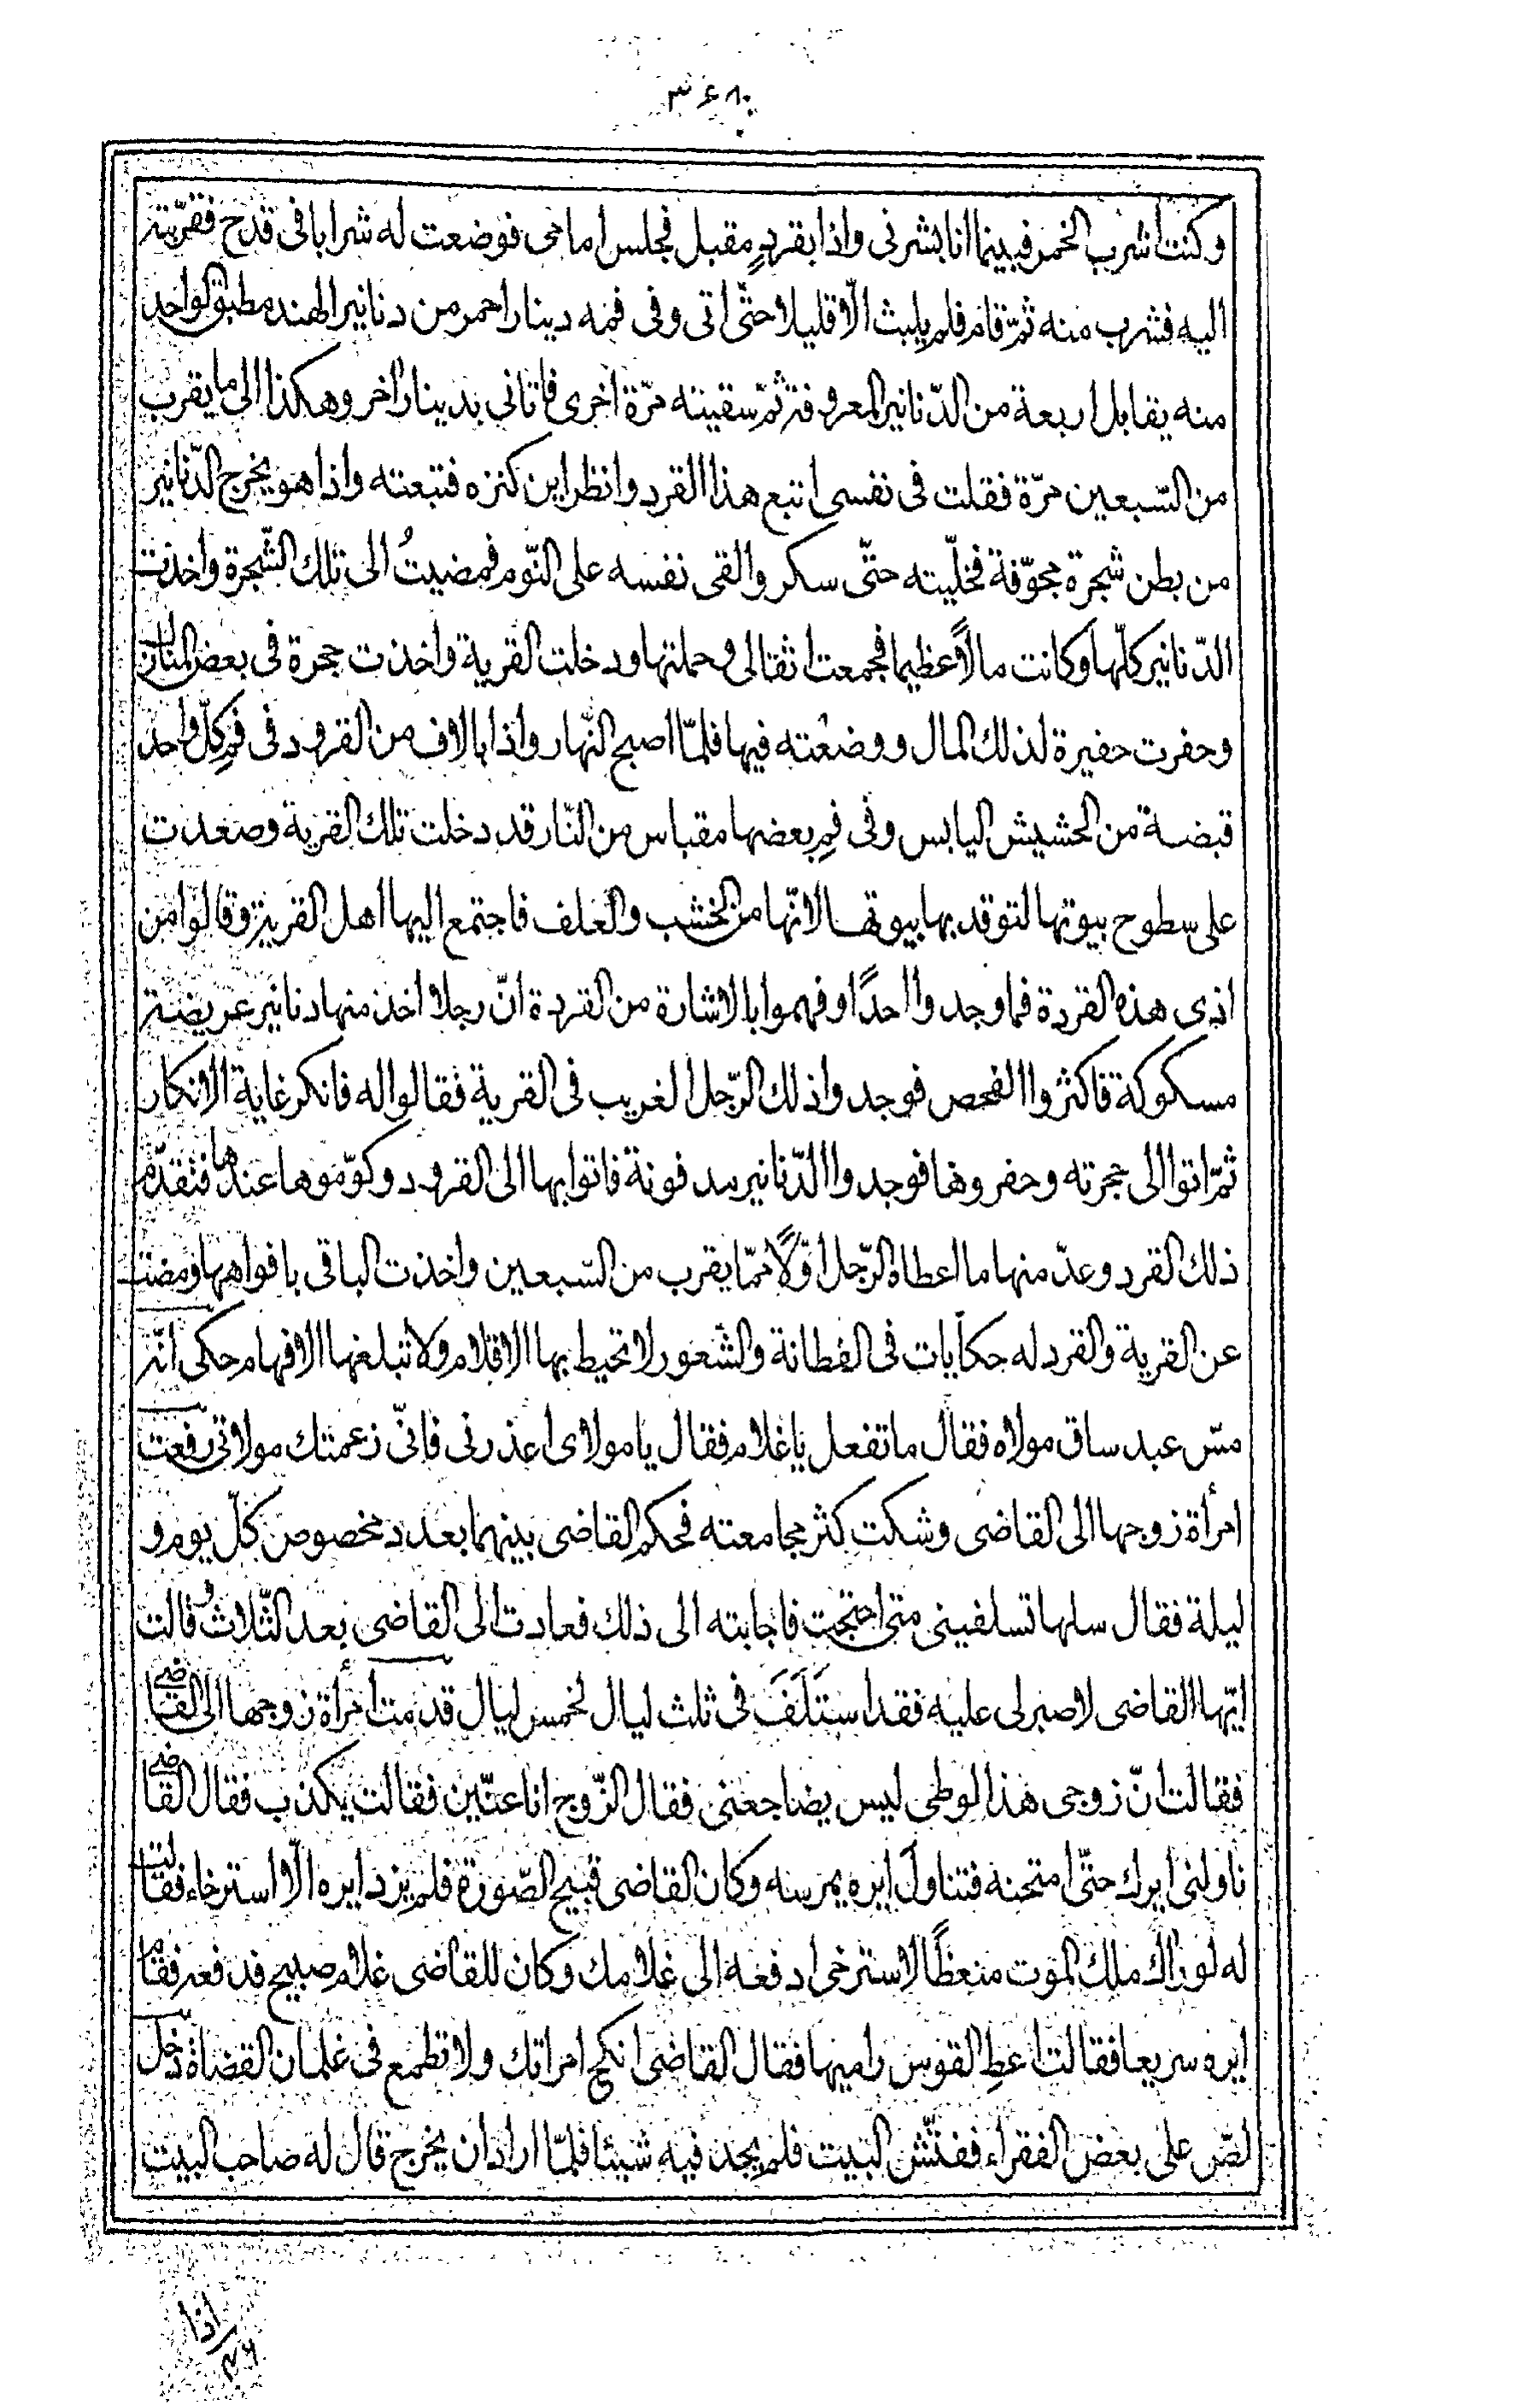 ٣٤٨
وكنت اشرب الخمر فبينما انا بشرنى واذا بقردٍ مقبل فجلس امامى فوضعت له شرابا فى قدح فقرّبته
اليه فشرب منه ثمّ قام فلم يلبث الّا قليلا حتّى اتى وفى فمه دينار احمر من دنانير الهند مطبق الواحد
منه يقابل اربعة من الدّنانير المعروفة ثمّ سقيته مرّة اخرى فاتانى بدينار اخر وهكذا الى ما يقرب
من السّبعين مرّة فقلت فى نفسى اتبع هذا القرد وانظر اين كنزه فتبعته واذا هو يخرج الدّنانير
من بطن شجرة مجوّفة فخلّيته حتّى سكر والقى نفسه على النّوم فمضيتُ الى تلك الشّجرة واخذت
الدّنانير كلّها وكانت مالًا عظيما فجمعت اثقالى وحملتها ودخلت القرية واخذت حجرة فى بعض المنازل
وحفرت حفيرة لذلك المال ووضعته فيها فلمّا اصبح النّهار واذا بالاف من القرود فى فم كلّ واحد
قبضة من الحشيش اليابس وفى فمِ بعضها مقباس من النّار قد دخلت تلك القرية وصعدت
على سطوح بيوتها لتوقد بها بيوتها لانّها من الخشب والعلف فاجتمع اليها اهل القرية وقالوا من
اذى هذه القردة فما وجدوا احدًا وفهموا بالاشارة من القردة انّ رجلا اخذ منها دنانير عريضة
مسكوكة فاكثروا الفحص فوجدوا ذلك الرّجل الغريب فى القرية فقالوا له فانكر غاية الانكار
ثمّ اتوا الى حجرته وحفروها فوجدوا الدّنانير مدفونة فاتوا بها الى القرود وكوّموها عندها فتقدّم
ذلك القرد وعدّ منها ما اعطاه الرّجل اوّلًا ممّا يقرب من السّبعين واخذت الباقى بافواهها ومضت
عن القرية والقرد له حكايات فى الفطانة والشّعور لا تحيط بها الاقلام ولا تبلغها الافهام حكى انّه
مسّ عبد ساق مولاه فقال ما تفعل يا غلام فقال يا مولاى اعذرنى فانّى زعمتك مولاتى رفعت
امرأة زوجها الى القاضى وشكت كثر مجامعته فحكم القاضى بينهما بعدد مخصوص كلّ يوم و
ليلة فقال سلها تسلفينى متى احتجت فاجابته الى ذلك فعادت الى القاضى بعد الثّلاث وقالت
ايّها القاضى لا صبر لى عليه فقد استَلَفَ فى ثلث ليال لخمس ليال قدمت امرأة زوجها الى القاضى
فقالت انّ زوجى هذا لوطى ليس يضاجعنى فقال الزّوج انا عنّين فقالت يكذب فقال القاضى
ناولنى ايرك حتّى امتحنه فتناول ايره يمرسه وكان القاضى قبيح الصّورة فلم يزد ايره الّا استرخاء فقالت
له لو راك ملك الموت منعظًا لاسترخى ادفعه الى غلامك وكان للقاضى غلام صبيح فدفعه فقام
ايره سريعا فقالت اعطِ القوس راميها فقال القاضى انكح امراتك ولا تطمع فى غلمان القضاة دخل
لصّ على بعض الفقراء ففتّش البيت فلم يجد فيه شيئا فلمّا اراد ان يخرج قال له صاحب البيت
اذا